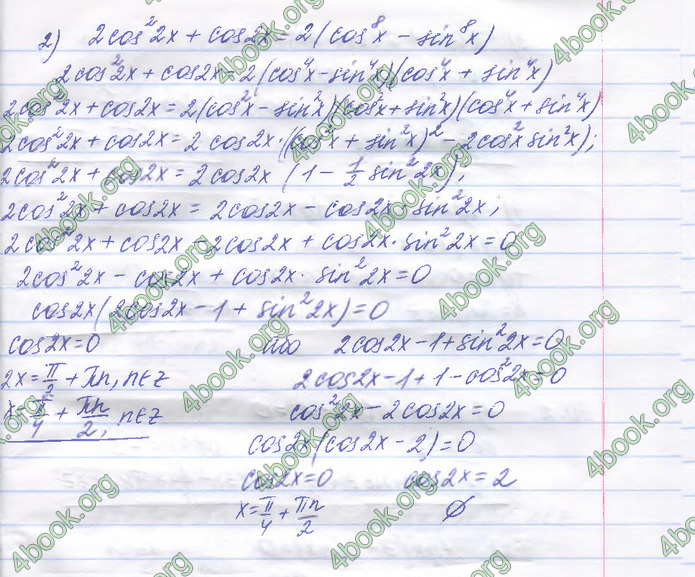 2) 2cos²2x + cos2x = 2(cos⁸x − sin⁸x)
2cos²2x + cos2x = 2(cos⁴x − sin⁴x)(cos⁴x + sin⁴x)
2cos²2x + cos2x = 2(cos²x − sin²x)(cos²x + sin²x)(cos⁴x + sin⁴x)
2cos²2x + cos2x = 2cos2x·((cos²x + sin²x)² − 2cos²x sin²x);
2cos²2x + cos2x = 2cos2x (1 − 1/2 sin²2x);
2cos²2x + cos2x = 2cos2x − cos2x·sin²2x;
2cos²2x + cos2x − 2cos2x + cos2x·sin²2x = 0
2cos²2x − cos2x + cos2x·sin²2x = 0
cos2x(2cos2x − 1 + sin²2x) = 0
cos2x = 0 або 2cos2x − 1 + sin²2x = 0
2x = π/2 + πn, n∈z 2cos2x − 1 + 1 − cos²2x = 0
x = π/4 + πn/2, n∈z cos²2x − 2cos2x = 0
cos2x(cos2x − 2) = 0
cos2x = 0 cos2x = 2
x = π/4 + πn/2 ∅
4book.org